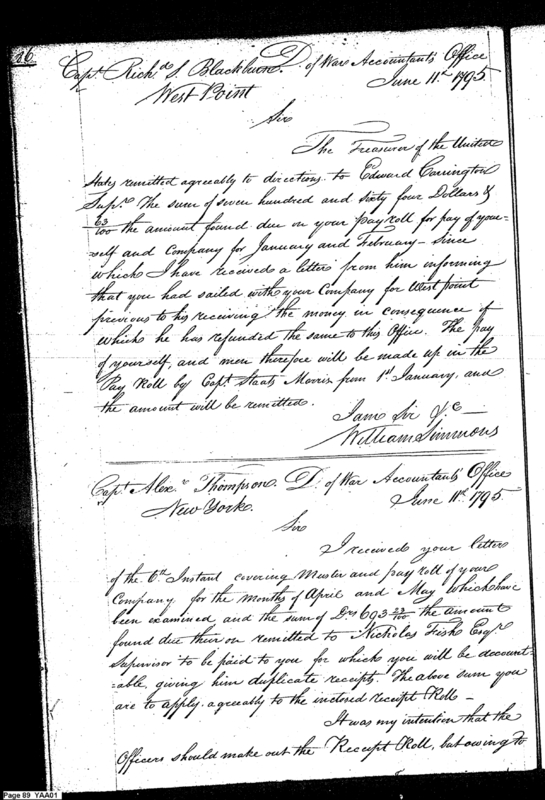 26.
Capt. Richd. S. Blackburn. D. of War Accountants Office
West Point June 11th 1795
Sir
The Treasurer of the United
States remitted agreeably to directions to Edward Carrington
Supr. The sum of seven hundred and sixty four Dollars &
63/100 the amount found due on your pay roll for pay of your-
self and Company for January and February – Since
which I have received a letter from him informing
that you had sailed with your Company for West point
previous to his receiving the money in consequence of
which he has refunded the same to this Office. The pay
of yourself, and men therefore will be made up in the
Pay Roll by Capt. Staats Morris from 1st. January, and
the amount will be remitted.
I am Sir &c –
William Simmons
Capt. Alexr. Thompson. D. of War Accountants Office
New York. June 11th. 1795
Sir
I received your letter
of the 6th. Instant covering Muster and pay roll of your
Company for the months of April and May which have
been examined and the sum of Drs 693 23/100 the amount
found due thereon remitted to Nicholas Fish Esqr.
Supervisor to be paid to you for which you will be account-
able, giving him duplicate receipts. The above sum you
are to apply agreeably to the inclosed receipt Roll –
It was my intention that the
Officers should make out the Receipt Roll, but owing to
Page 89 YAA01